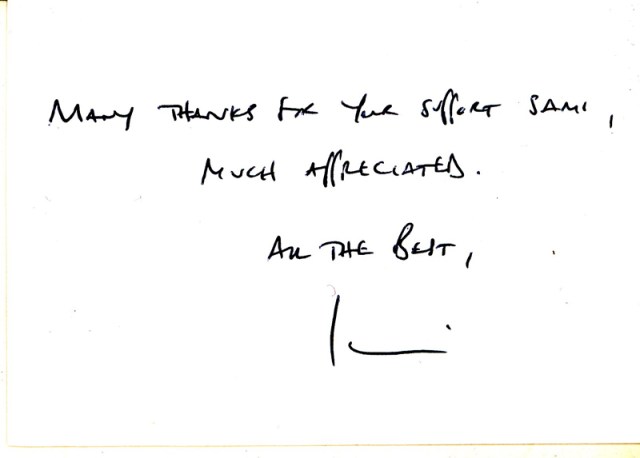 MANY THANKS FOR YOUR SUPPORT SAMI,
MUCH APPRECIATED.
ALL THE BEST,